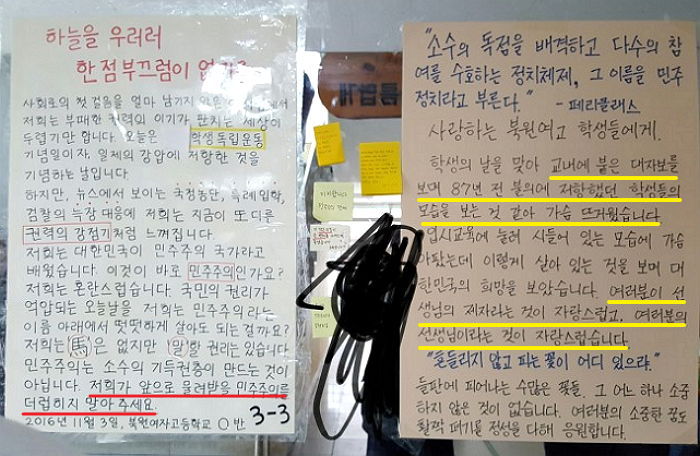 하늘을 우러러
한점 부끄럼이 없
사회로의 첫 걸음을 얼마 남기지 않은
저희는 부패한 권력의 이기가 판치는 세상이
두렵기만 합니다. 오늘은 학생독립운동
기념일이자, 일제의 강압에 저항한 것을
기념하는 날입니다.
하지만, 뉴스에서 보이는 국정농단, 특례입학,
검찰의 늑장 대응에 저희는 지금이 또 다른
권력의 강점기처럼 느껴집니다.
저희는 대한민국이 민주주의 국가라고
배웠습니다. 이것이 바로 민주주의인가요?
저희는 혼란스럽습니다. 국민의 권리가
억압되는 오늘날을 저희는 민주주의라는
이름 아래에서 떳떳하게 살아도 되는 걸까요?
저희는 馬은 없지만 말할 권리는 있습니다
민주주의는 소수의 기득권층이 만드는 것이
아닙니다. 저희가 앞으로 물려받을 민주주의를
더럽히지 말아 주세요.
3-3
2016년 11월 3일, 북원여자고등학교 O반
"소수의 독점을 배격하고 다수의 참
여를 수호하는 정치체제, 그 이름을 민주
정치라고 부른다." - 페리클래스
사랑하는 북원여고 학생들에게.
학생의 날을 맞아 교내에 붙은 대자보를
보며 87년 전 불의에 저항했던 학생들의
모습을 보는 것 같아 가슴 뜨거웠습니다
입시교육에 눌려 시들어 있는 모습에 가슴
아팠는데 이렇게 살아 있는 것을 보며 대
한민국의 희망을 보았습니다. 여러분이 선
생님의 제자라는 것이 자랑스럽고, 여러분의
선생님이라는 것이 자랑스럽습니다.
"흔들리지 않고 피는 꽃이 어디 있으랴."
들판에 피어나는 수많은 꽃들. 그 어느 하나 소중
하지 않은 것이 없습니다. 여러분의 소중한 꿈도
활짝 펴기를 정성을 다해 응원합니다.